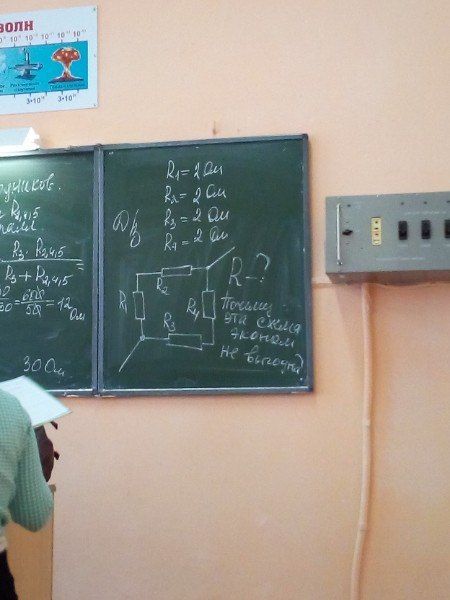 волн
3*10¹¹
одников.
R₂,₄,₅
R₃ · R₂,₄,₅
R₃ + R₂,₄,₅
=
= 600/50 = 12 Ом
30 Ом
R₁ = 2 Ом
R₂ = 2 Ом
R₃ = 2 Ом
R₄ = 2 Ом
Д/з
R₂
R₁
R₄
R₃
R - ?
Почему
эта схема
эконом
не выгодна?